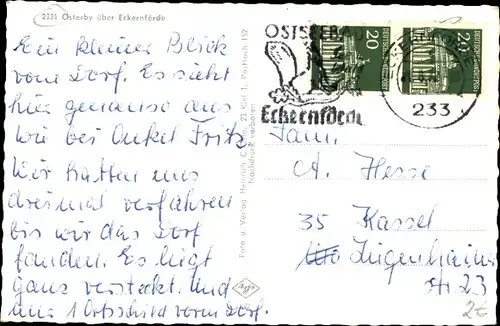 2331 Osterby über Eckernförde
Ein kleiner Blick
vom Dorf. Es sieht
hier genauso aus
wie bei Onkel Fritz
Wir hatten uns
dreimal verfahren
bis wir das Dorf
fanden. Es liegt
ganz versteckt. Und
nur 1 Ortsschild vom Dorf.
Foto u. Verlag Heinrich C. 23 Kiel 1, Postfach 152
Nachdruck verboten
OSTSEEBAD
Eckernförde
20
20
233
Fam.
A. Hesse
35 Kassel
Jugenheim
Str. 23
2€